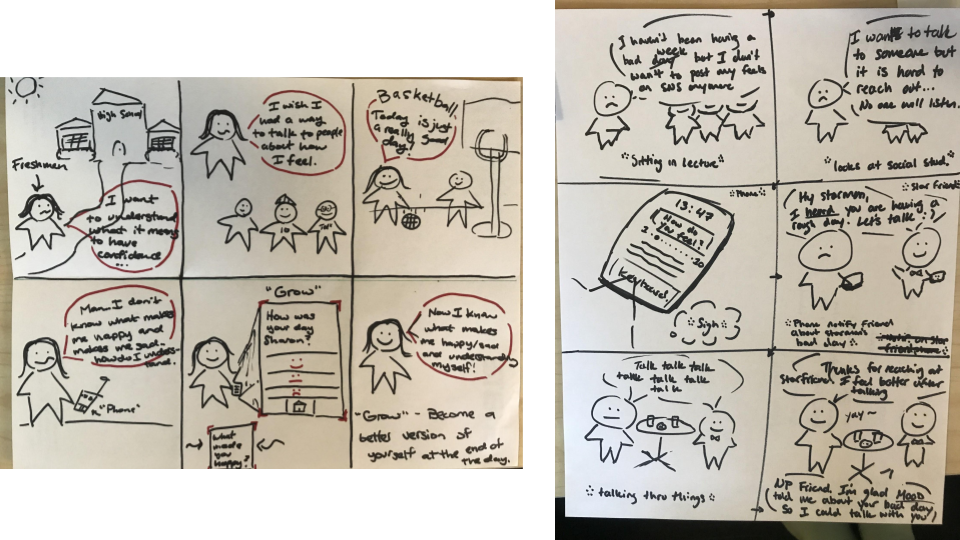 High School
Freshmen
I want
to understand
what it means
to have
confidence
...
I wish I
had a way
to talk to people
about how
I feel.
Basketball!
Today
is just
a really
good
day!
Man.. I don't
know what makes
me happy and
makes me sad..
how do I
"Phone"
"Grow"
How was
your day
Sharon?
What
made
you
happy?
Now I know
what makes
me happy/sad
and understand
myself!
"Grow" - Become a
better version of
yourself at the end of
the day.
I haven't been having a
bad week but I don't
want to post my feels
on SNS anymore
"Sitting in lecture"
I want to talk
to someone but
it is hard to
reach out...
No one will listen.
"looks at social stud."
Phone
13:47
How do
you feel?
Keyboard
Sigh
Star Friend
My starmon,
I heard you are having a
rough day. Let's talk :)
Phone notify friend
about starmon's
bad day
Talk talk talk
talk talk talk
talk
talking thru things
Thanks for reaching out
Starfriend. I feel better after
talking
yay~
NP Friend. I'm glad MOOD
told me about your bad day
So I could talk with you